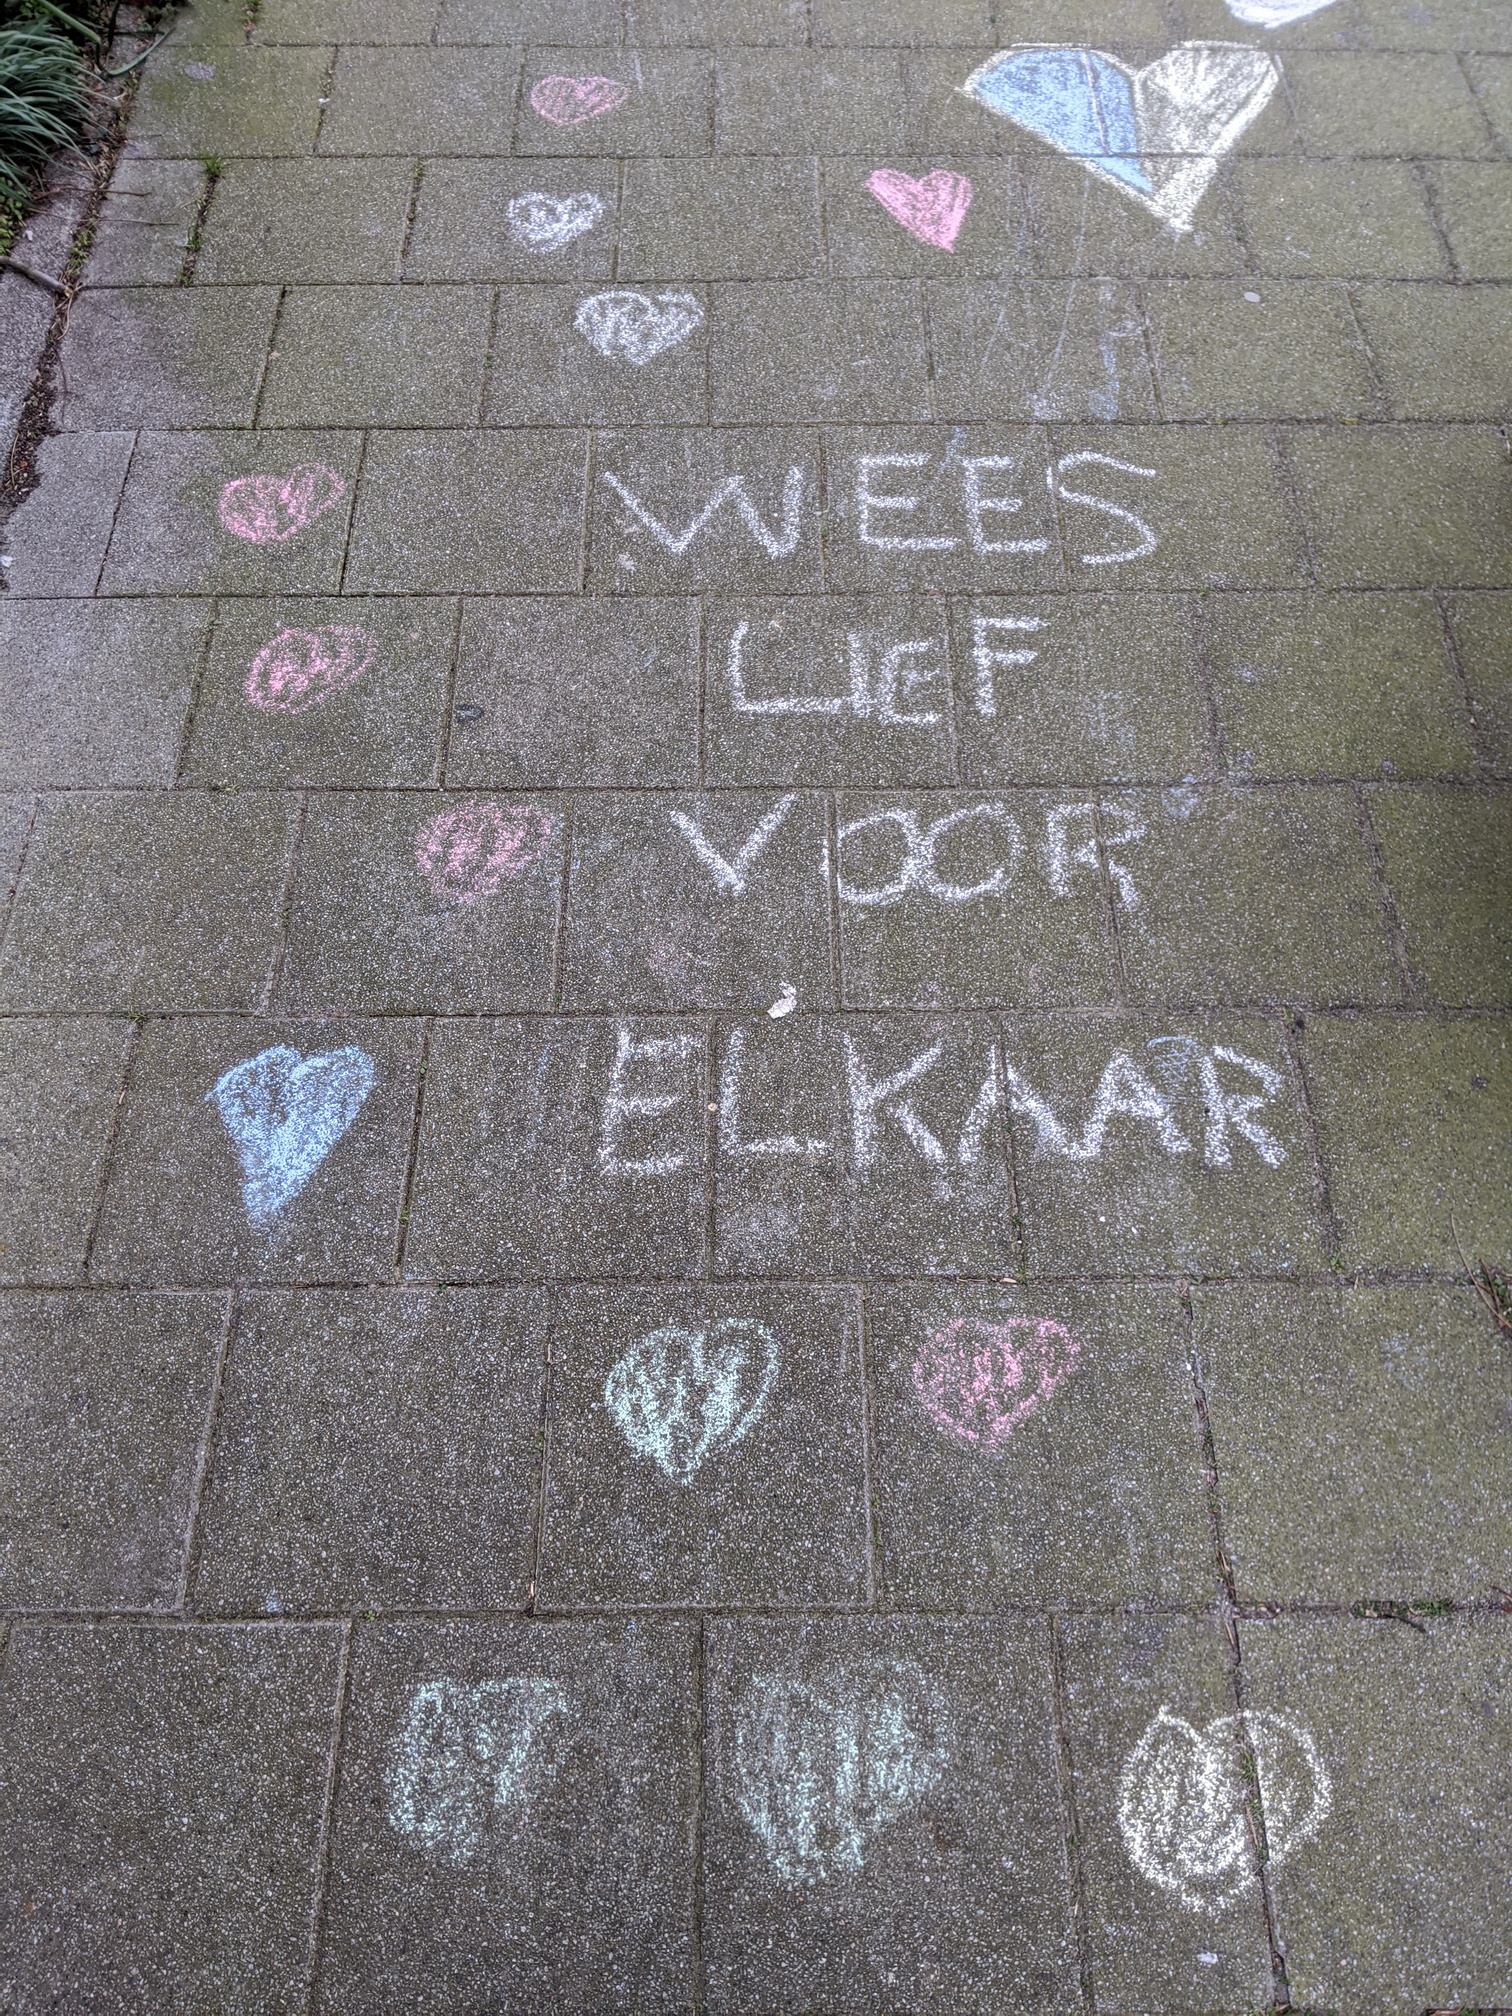 WEES
LIEF
VOOR
ELKAAR